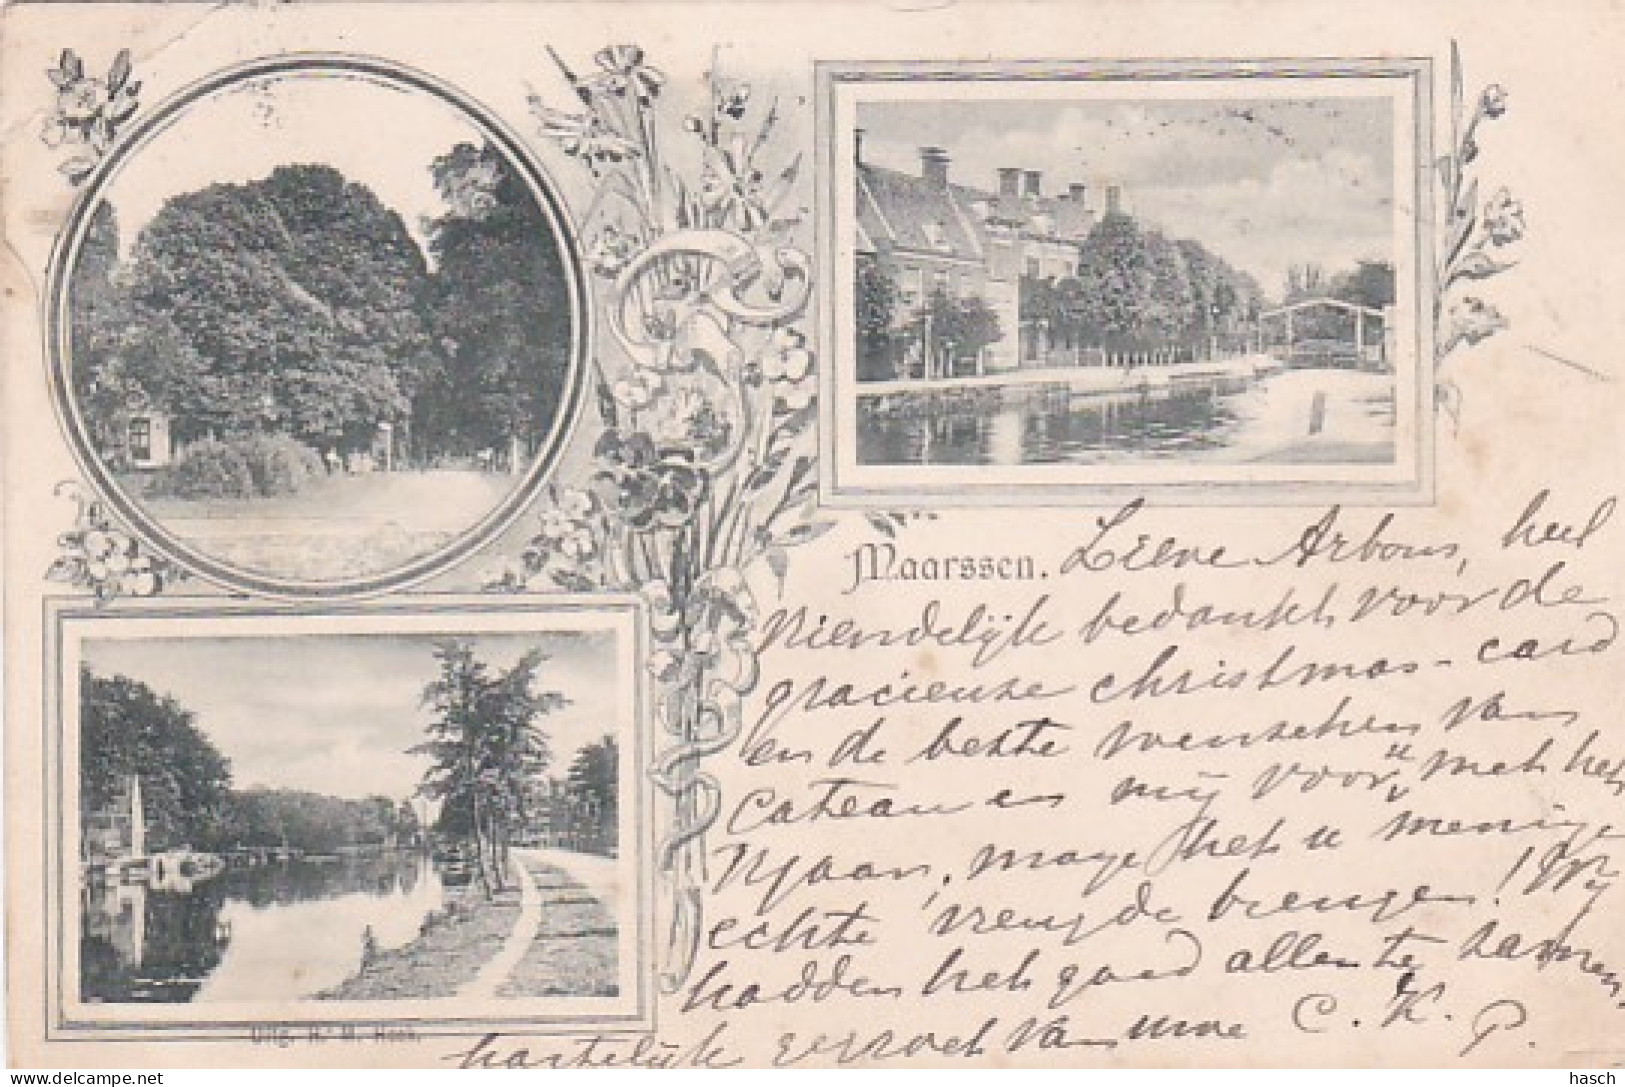 Maarssen. Lieve Arbous, heel
vriendelijk bedankt voor de
gracieuse christmas-card
en de beste wenschen van
Cateau en mij voor u met het
N. Jaar, moge het u menige
echte vreugde brengen! Wij
hadden het goed allen te zamen,
hartelijk gegroet van uwe C. K. P.
Uitg. H. M. Hoek.
hasch
delcampe.net